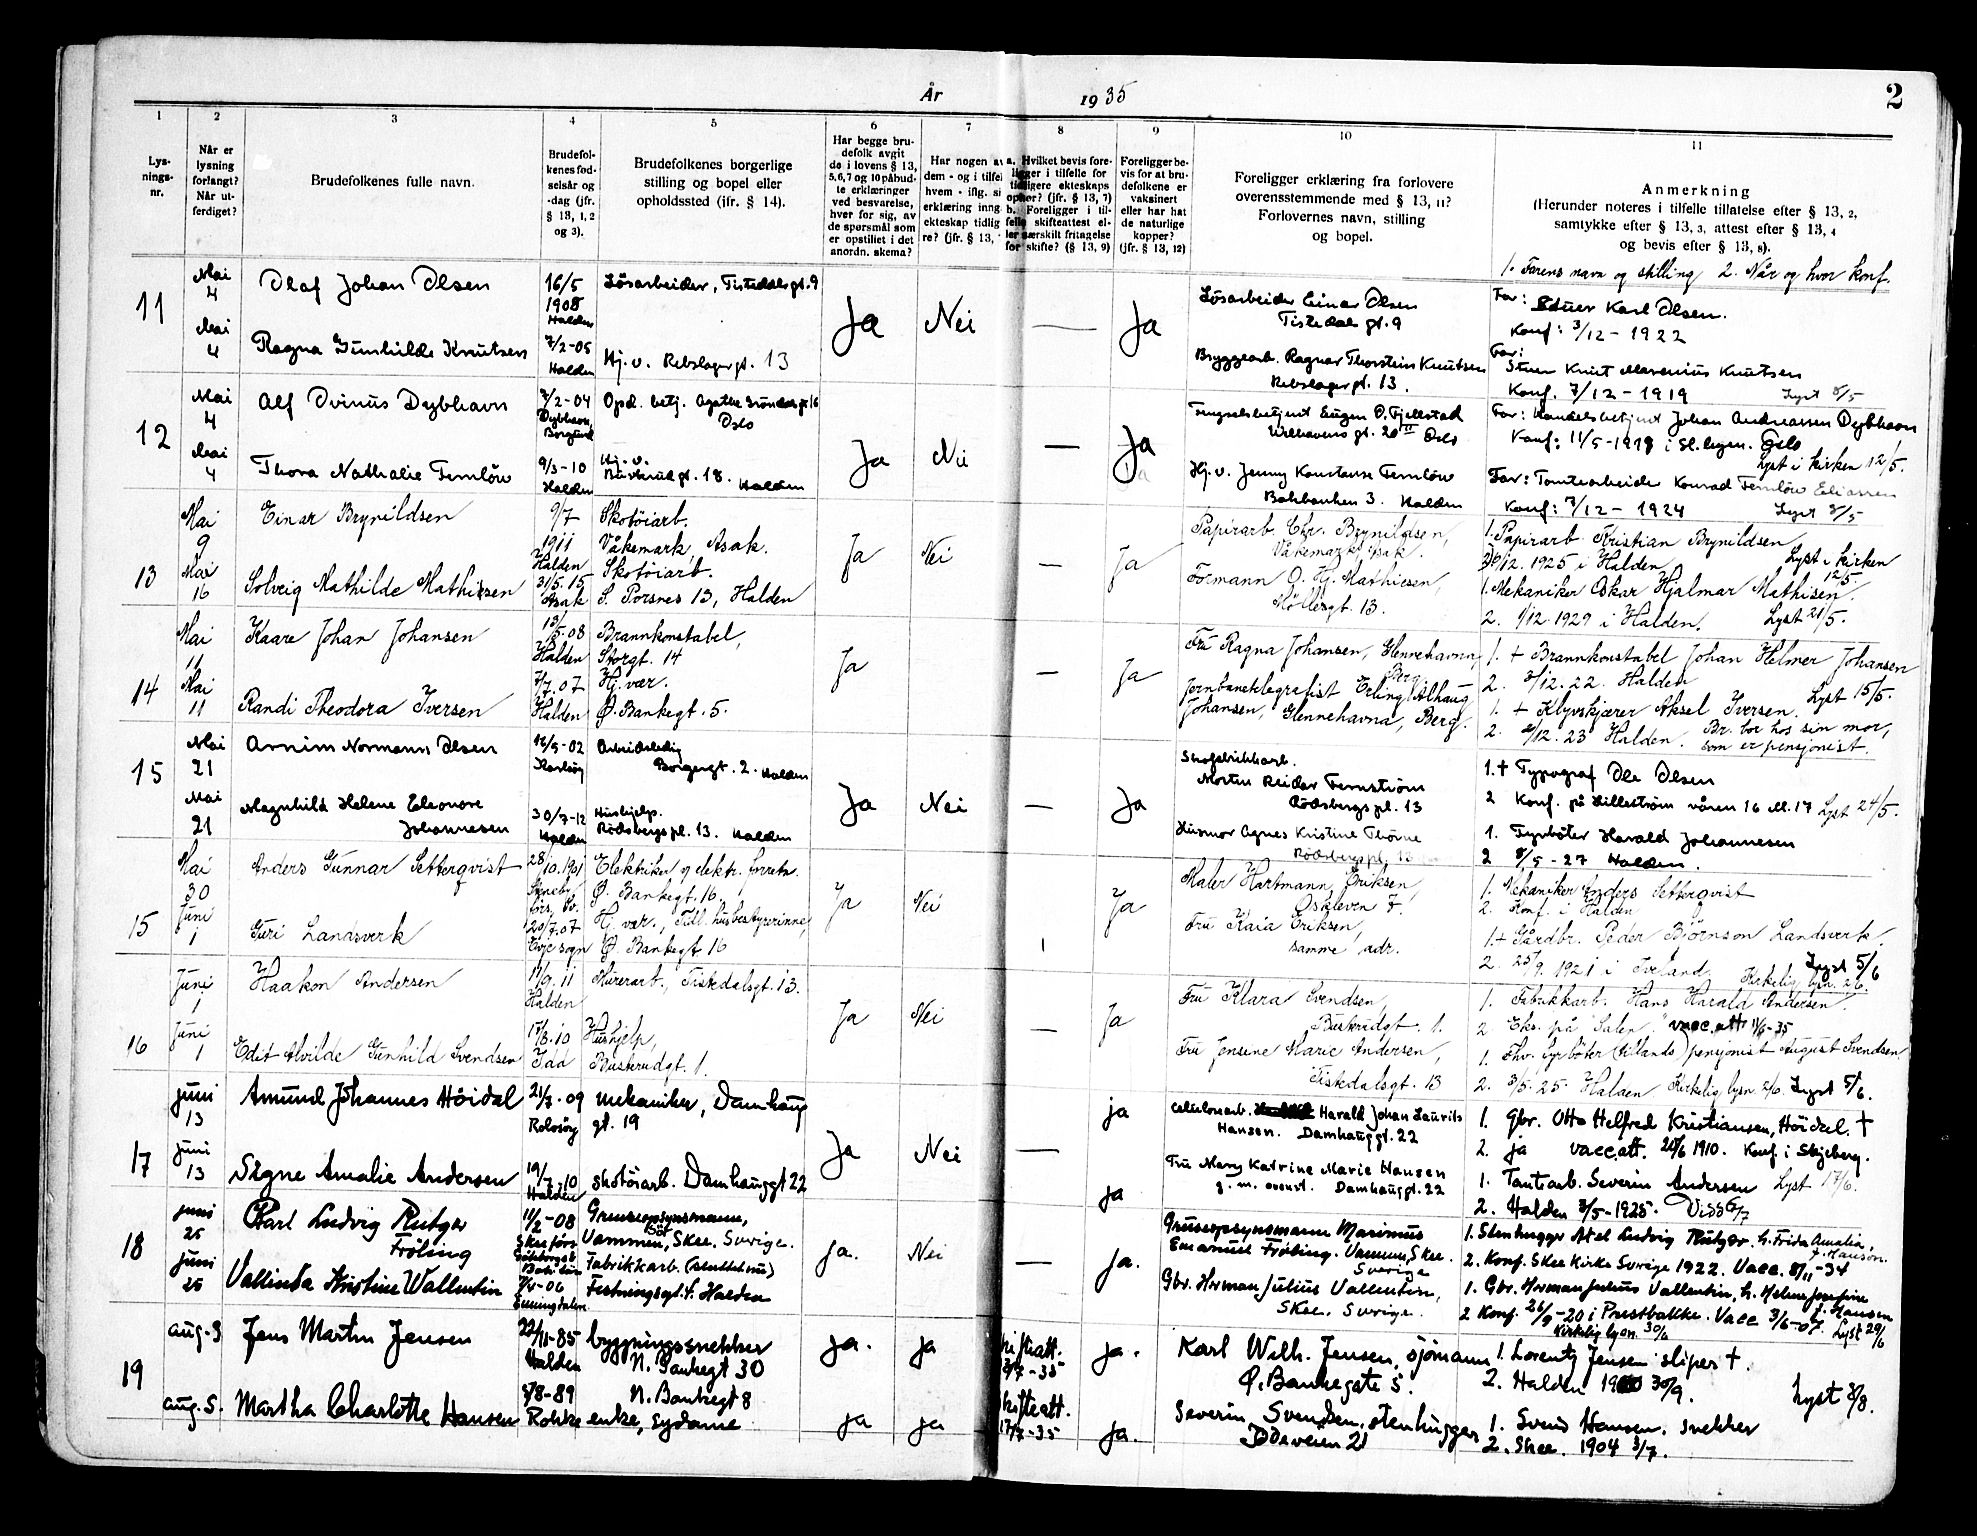 År 1935
2
1
2
3
4
5
6
7
8
9
10
11
Lys-
nings-
nr.
Når er
lysning
forlangt?
Når ut-
ferdiget?
Brudefolkenes fulle navn.
Brudefol-
kenes fød-
selsår og
-dag (jfr.
§ 13, 1, 2
og 3).
Brudefolkenes borgerlige
stilling og bopel eller
opholdssted (jfr. § 14).
Har begge bru-
defolk avgit
de i lovens § 13,
5, 6, 7 og 10 påbud-
te erklæringer
ved besvarelse,
hver for sig, av
de spørsmål som
er opstillet i det
anordn. skema?
Har nogen av
dem - og i tilfel
hvem - iflg. si
erklæring inng.
ekteskap tidlig
re? (jfr. § 13,
a. Hvilket bevis fore-
ligger i tilfelle for
tidligere ekteskaps
ophør? (jfr. § 13, 7)
b. Foreligger i til-
felle skifteattest el-
ler særskilt fritagelse
for skifte? (§ 13, 9)
Foreligger be-
vis for at bru-
defolkene er
vaksinert
eller har hat
de naturlige
kopper?
(jfr. § 13, 12)
Foreligger erklæring fra forlovere
overensstemmende med § 13, 11?
Forlovernes navn, stilling
og bopel.
Anmerkning
(Herunder noteres i tilfelle tillatelse efter § 13, 2,
samtykke efter § 13, 3, attest efter § 13, 4
og bevis efter § 13, 8).
1. Farens navn og stilling 2. Når og hvor konf.
11
Mai
4
Olaf Johan Olsen
16/5
1908
Halden
Løsarbeider, Tistedalsgt. 9
Ja
Nei
—
Ja
Løsarbeider Einar Olsen
Tistedalsgt. 9
Far: Stuer Karl Olsen.
Konf: 3/12 - 1922
Mai
4
Ragna Gunhilde Knutsen
7/2-05
Halden
Hj.v. Rebslagergt. 13
Bryggearb. Ragnar Thorstein Knutsen
Rebslagergt. 13.
Far:
Stuer Knut Marenius Knutsen
Konf. 7/12 - 1919
Lyst 8/5
12
Mai
4
Alf Ovinus Dybhavn
7/2-04
Dybhavn,
Borgund
Opd. betj. Agathe Grøndalsgt. 16
Oslo
Ja
Nei
—
Ja
Fengselsbetjent Eugen O. Fjellstad
Welhavens gt. 20 II Oslo
Far: Handelsbetjent Johan Andreassen Dybhavn
Konf: 11/5-1919 i Oslo
Lyst i kirken 12/5.
Mai
4
Thora Nathalie Fernlöw
9/3-10
Halden
Hj.v.
Buskrudgt. 18. Halden
Hj.v. Jenny Konstanse Fernlöw
Bakbanken 3. Halden
Far: Tomtearbeider Konrad Fernlöw Eliassen
Konf: 7/12 - 1924
Lyst 8/5
13
Mai
9
Einar Brynildsen
9/7
1911
Halden
Skotøiarb.
Våkemark, Asak.
Ja
Nei
—
Ja
Papirarb. Chr. Brynildsen,
Våkemark, Asak.
1. Papirarb. Kristian Brynildsen
12. 1925 i Halden
Lyst i kirken
12/5.
Mai
16
Solveig Mathilde Mathisen
31/5. 15
Asak
Skotøiarb.
S. Porsnes 13, Halden
Formann O. Hj. Mathiesen,
Møllergt. 13.
1. Mekaniker Oskar Hjalmar Mathisen.
2. 1/12. 1929 i Halden.
Lyst 21/5.
14
Mai
11
Kaare Johan Johansen
13/
5.08
Halden
Brannkonstabel,
Storgt. 14
Ja
—
Ja
Fru Ragna Johansen, Glennehavna,
Berg.
1. + Brannkonstabel Johan Helmer Johansen
2. 3/12. 22. Halden
Mai
11
Randi Theodora Iversen
7/7. 07
Halden
Hj. vær.
Ø. Bankegt. 5.
Jernbanetelegrafist Erling Alhaug
Johansen, Glennehavna, Berg.
1. + Klyvskjærer Aksel Iversen.
Lyst 15/5.
2. 2/12. 23 Halden.
Br. bor hos sin mor,
som er pensjonist.
15
Mai
21
Arnim Normann Olsen
12/5-02
Arbeidsledig
Borgergt. 2. Halden
Ja
Nei
—
Ja
Skofabrikkarb.
Morten Reidar Fernström
Rødsbergspl. 13
1. + Typograf Ole Olsen
2 Konf. på Lilleström våren 16 el. 17
Lyst 24/5.
Mai
21
Magnhild Helene Eleonore
Johannesen
30/7-12
Halden
Hushjelp.
Rødsbergspl. 13. Halden
Husmor Agnes Kristine Thorne
Rødsbergspl. 13
1. Fyrbøter Harald Johannesen
2 8/5 - 27 Halden.
15
Mai
30
Anders Gunnar Setterqvist
28/
10. 1901
Elektriker og elektr. forretn.
Ø. Bankegt. 16.
Ja
Nei
Ja
Maler Hartmann Eriksen,
Oskleven 7.
1. Mekaniker Anders Setterqvist
2. Konf. i Halden
Juni
1
Guri Landsverk
20/7. 07
Evje sogn
Hj. vær., Tidl. husbestyrerinne,
Ø. Bankegt 16
Fru Kaia Eriksen,
samme adr.
1. + Gårdbr. Peder Bjørnson Landsverk.
2. 25/9. 1921 i Iveland.
Lyst 5/6
Kirkelig lysn. 2/6.
16
Juni
1
Haakon Andersen
17/9. 11
Halden
Murerarb., Tistedalsgt. 13.
Ja
Nei
—
Ja
Fru Klara Svendsen,
Buskrudgt. 1.
1. Fabrikkarb. Hans Harald Andersen.
2. Eks. på "Salen". vacc.att 1/6-35
Juni
1
Edit Alvilde Gunhild Svendsen
17/3. 10
Idd
Hushjelp,
Buskrudgt. 1.
Fru Jensine Marie Andersen,
Tistedalsgt. 13
1. Fhv. fyrbøter (tillands) pensjonist August Svendsen
2. 3/5. 25. Halden Kirkelig lysn. 2/6. Lyst 5/6.
17
juni
13
Amund Johannes Höidal
21/7. 09
Rolvsøy
mekaniker, Damhaug
gt. 19
Ja
Nei
—
ja
Cellulosearb. Harald Johan Laurits
Hansen. Damhauggt. 22
1. Gbr. Otto Helfred Kristiansen, Höidal. †
2. ja vacc.att. 20/6 1910. Konf i Skjeberg.
juni
13
Signe Amalie Andersen
19/7. 10
Halden
skotøiarb. Damhauggt 22
ja
Fru Mary Katrine Marie Hansen
g. m. ovenst. Damhauggt. 22
1. Tomtearb. Severin Andersen Lyst 17/6.
2. Halden 3/5-1925.
18
juni
25
Karl Ludvig Rutger
Fröling
11/2-08
Skee förs.
Göteborgs &
Bohus län
Gruveopsynsmann,
Vammen, Skee. Sverige.
ja.
Nei
—
ja.
Gruveopsynsmann Marinius
Emanuel Fröling. Vammen, Skee.
Sverige
1. Stenhugger Axel Ludvig Rutger. h. Frida Amalia
f. Hansson.
2. Konf. Skee Kirke Sverige 1922. Vacc. 8/11-34
juni
25
Vallinda Kristine Wallentin
7/4-06
Enningdalen
Fabrikkarb. (sluttet nu)
Festningsgt. 5. Halden
Gbr. Herman Julius Vallentin,
Skee. Sverige.
1. Gbr. Herman Julius Vallentin, h. Helene Josefine
f. Hansen
2 Konf. 26/9-20 i Prestbakke. Vacc 3/6-07.
Lyst 29/6
Kirkelig lysn. 30/6
19
aug. 3
Jens Martin Jensen
22/11-85
Halden
bygningssnekker
N. Bankegt 30
ja.
ja
skifteatt.
2/7-35
ja.
Karl Wilh. Jensen, sjömann
Ø. Bankegate 5.
1. Lorentz Jensen sliper †.
2. Halden 1900 30/9.
Lyst 3/8.
aug. 5.
Martha Charlotte Hansen
8/8-89
Rokke
N. Bankegt 8
enke, sydame
ja
ja
skifteatt.
17/7-35
ja.
Severin Svendsen, stenhugger
Oddaveien 21
1. Svend Hansen. snekker
2. Skee. 1904 3/7.